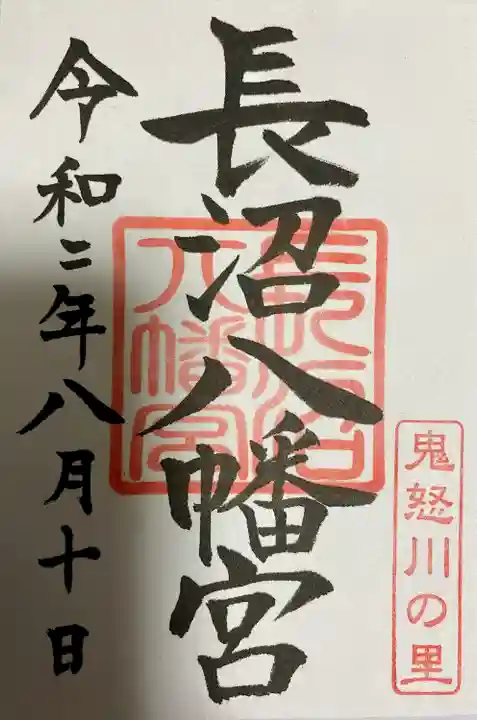 鬼怒川の里
長沼八幡宮
長沼八幡宮
令和二年八月十日